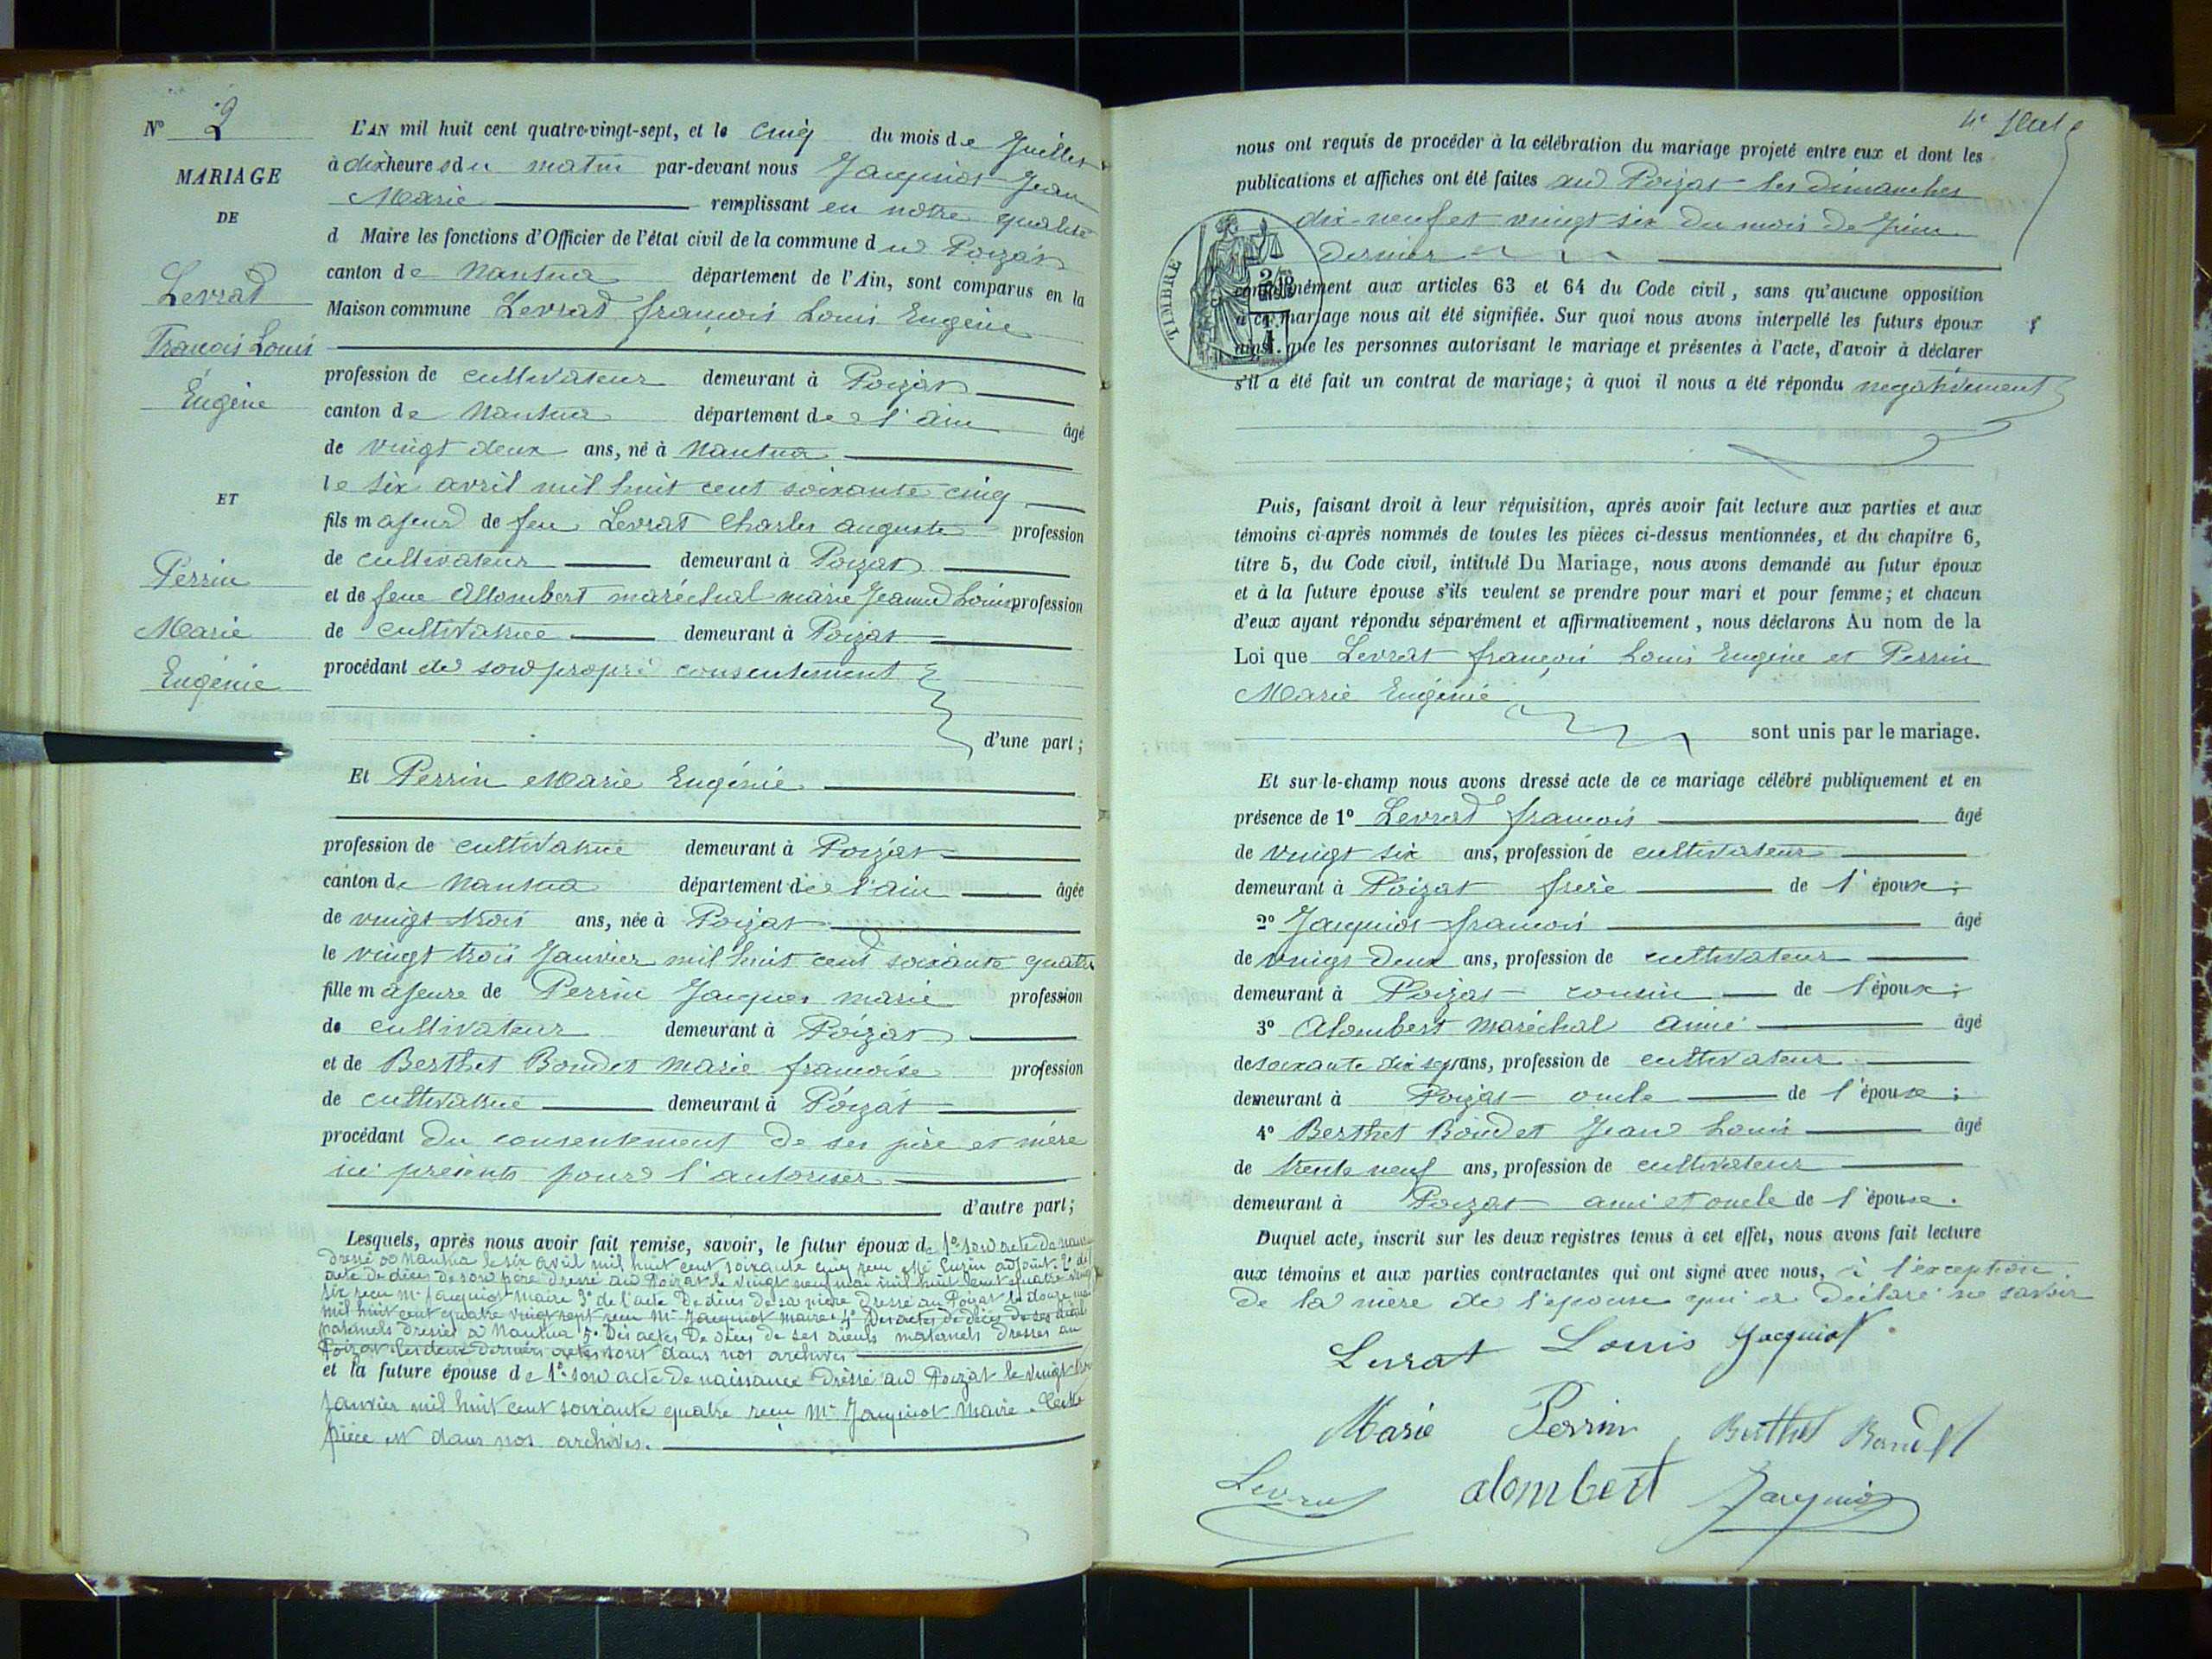 N° 2
MARIAGE
DE
Levrat
François Louis
Eugène
ET
Perrin
Marie
Eugénie
L'AN mil huit cent quatre-vingt-sept, et le cinq du mois de Juillet
à dix heures du matin par-devant nous Jacquiot Jean
Marie remplissant en notre qualité
d Maire les fonctions d'Officier de l'état civil de la commune du Poizat
canton de Nantua département de l'Ain, sont comparus en la
Maison commune Levrat françois Louis Eugène
profession de cultivateur demeurant à Poizat
canton de Nantua département de l'ain âgé
de vingt deux ans, né à Nantua
le six avril mil huit cent soixante cinq
fils majeur de feu Levrat Charles auguste profession
de cultivateur demeurant à Poizat
et de feue Allombert maréchal marie Jeanne Louise profession
de cultivatrice demeurant à Poizat
procédant de son propre consentement
d'une part;
Et Perrin Marie Eugénie
profession de cultivatrice demeurant à Poizat
canton de Nantua département de l'ain âgée
de vingt trois ans, née à Poizat
le vingt trois Janvier mil huit cent soixante quatre
fille majeure de Perrin Jacques marie profession
de cultivateur demeurant à Poizat
et de Berthet Bondet Marie françoise profession
de cultivatrice demeurant à Poizat
procédant du consentement de ses père et mère
ici présents pour l'autoriser
d'autre part;
Lesquels, après nous avoir fait remise, savoir, le futur époux de 1° son acte de
dressé à Nantua le six avril mil huit cent soixante cinq reçu adjoint. 2° de l'
acte de décès de son père dressé au Poizat le vingt neuf mai mil huit cent quatre vingt
six reçu Mr Jacquiot maire 3° de l'acte de décès de sa mère dressé au Poizat le douze
mil huit cent quatre vingt sept reçu Mr Jacquiot maire. 4° Des actes de décès de ses aïeuls
paternels dressés à Nantua 5° Des actes de décès de ses aïeuls maternels dressés au
Poizat les deux derniers actes sont dans nos archives
et la future épouse de 1° son acte de naissance dressé au Poizat le vingt trois
Janvier mil huit cent soixante quatre reçu Mr Jacquiot Maire. Cette
pièce est dans nos archives.
nous ont requis de procéder à la célébration du mariage projeté entre eux et dont les
publications et affiches ont été faites au Poizat les dimanches
dix-neuf et vingt six du mois de Juin
dernier
TIMBRE
conformément aux articles 63 et 64 du Code civil, sans qu'aucune opposition
à ce mariage nous ait été signifiée. Sur quoi nous avons interpellé les futurs époux
ainsi que les personnes autorisant le mariage et présentes à l'acte, d'avoir à déclarer
s'il a été fait un contrat de mariage; à quoi il nous a été répondu negativement
Puis, faisant droit à leur réquisition, après avoir fait lecture aux parties et aux
témoins ci-après nommés de toutes les pièces ci-dessus mentionnées, et du chapitre 6,
titre 5, du Code civil, intitulé Du Mariage, nous avons demandé au futur époux
et à la future épouse s'ils veulent se prendre pour mari et pour femme; et chacun
d'eux ayant répondu séparément et affirmativement, nous déclarons Au nom de la
Loi que Levrat françois Louis Eugène et Perrin
Marie Eugénie
sont unis par le mariage.
Et sur-le-champ nous avons dressé acte de ce mariage célébré publiquement et en
présence de 1° Levrat françois âgé
de vingt six ans, profession de cultivateur
demeurant à Poizat frère de l'époux;
2° Jacquiot françois âgé
de vingt deux ans, profession de cultivateur
demeurant à Poizat cousin de l'époux;
3° Alombert Maréchal aimé âgé
de soixante dix sept ans, profession de cultivateur
demeurant à Poizat oncle de l'époux;
4° Berthet Bondet Jean Louis âgé
de trente neuf ans, profession de cultivateur
demeurant à Poizat ami et oncle de l'épouse.
Duquel acte, inscrit sur les deux registres tenus à cet effet, nous avons fait lecture
aux témoins et aux parties contractantes qui ont signé avec nous, à l'exception
de la mère de l'épouse qui a déclaré ne savoir
Levrat Louis Jacquiot
Marie Perrin Berthet Bondet
Levrat alombert Jacquiot